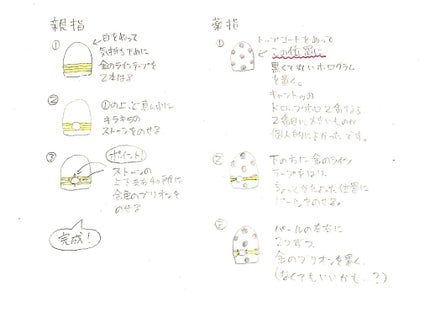 親指
①
白をぬって
気持ち下めに
金のラインテープを
2本はる
②
①の上、ど真ん中に
キラキラの
ストーンをのせる
③
ポイント!
ストーンの
上下左右4ヶ所に
金色のブリオンを
のせる
完成!
薬指
①
トップコートをぬって
この位置に
黒くて丸いホログラム
を置く。
キャンドゥの
2番目に大きいものが
個人的によかったです。
②
下の方に金のライン
テープをはり、
ちょっとかたよった位置に
パールをのせる。
③
パールの左右に
2つずつ、
金のブリオンを置く。
(なくてもいいかも…?)